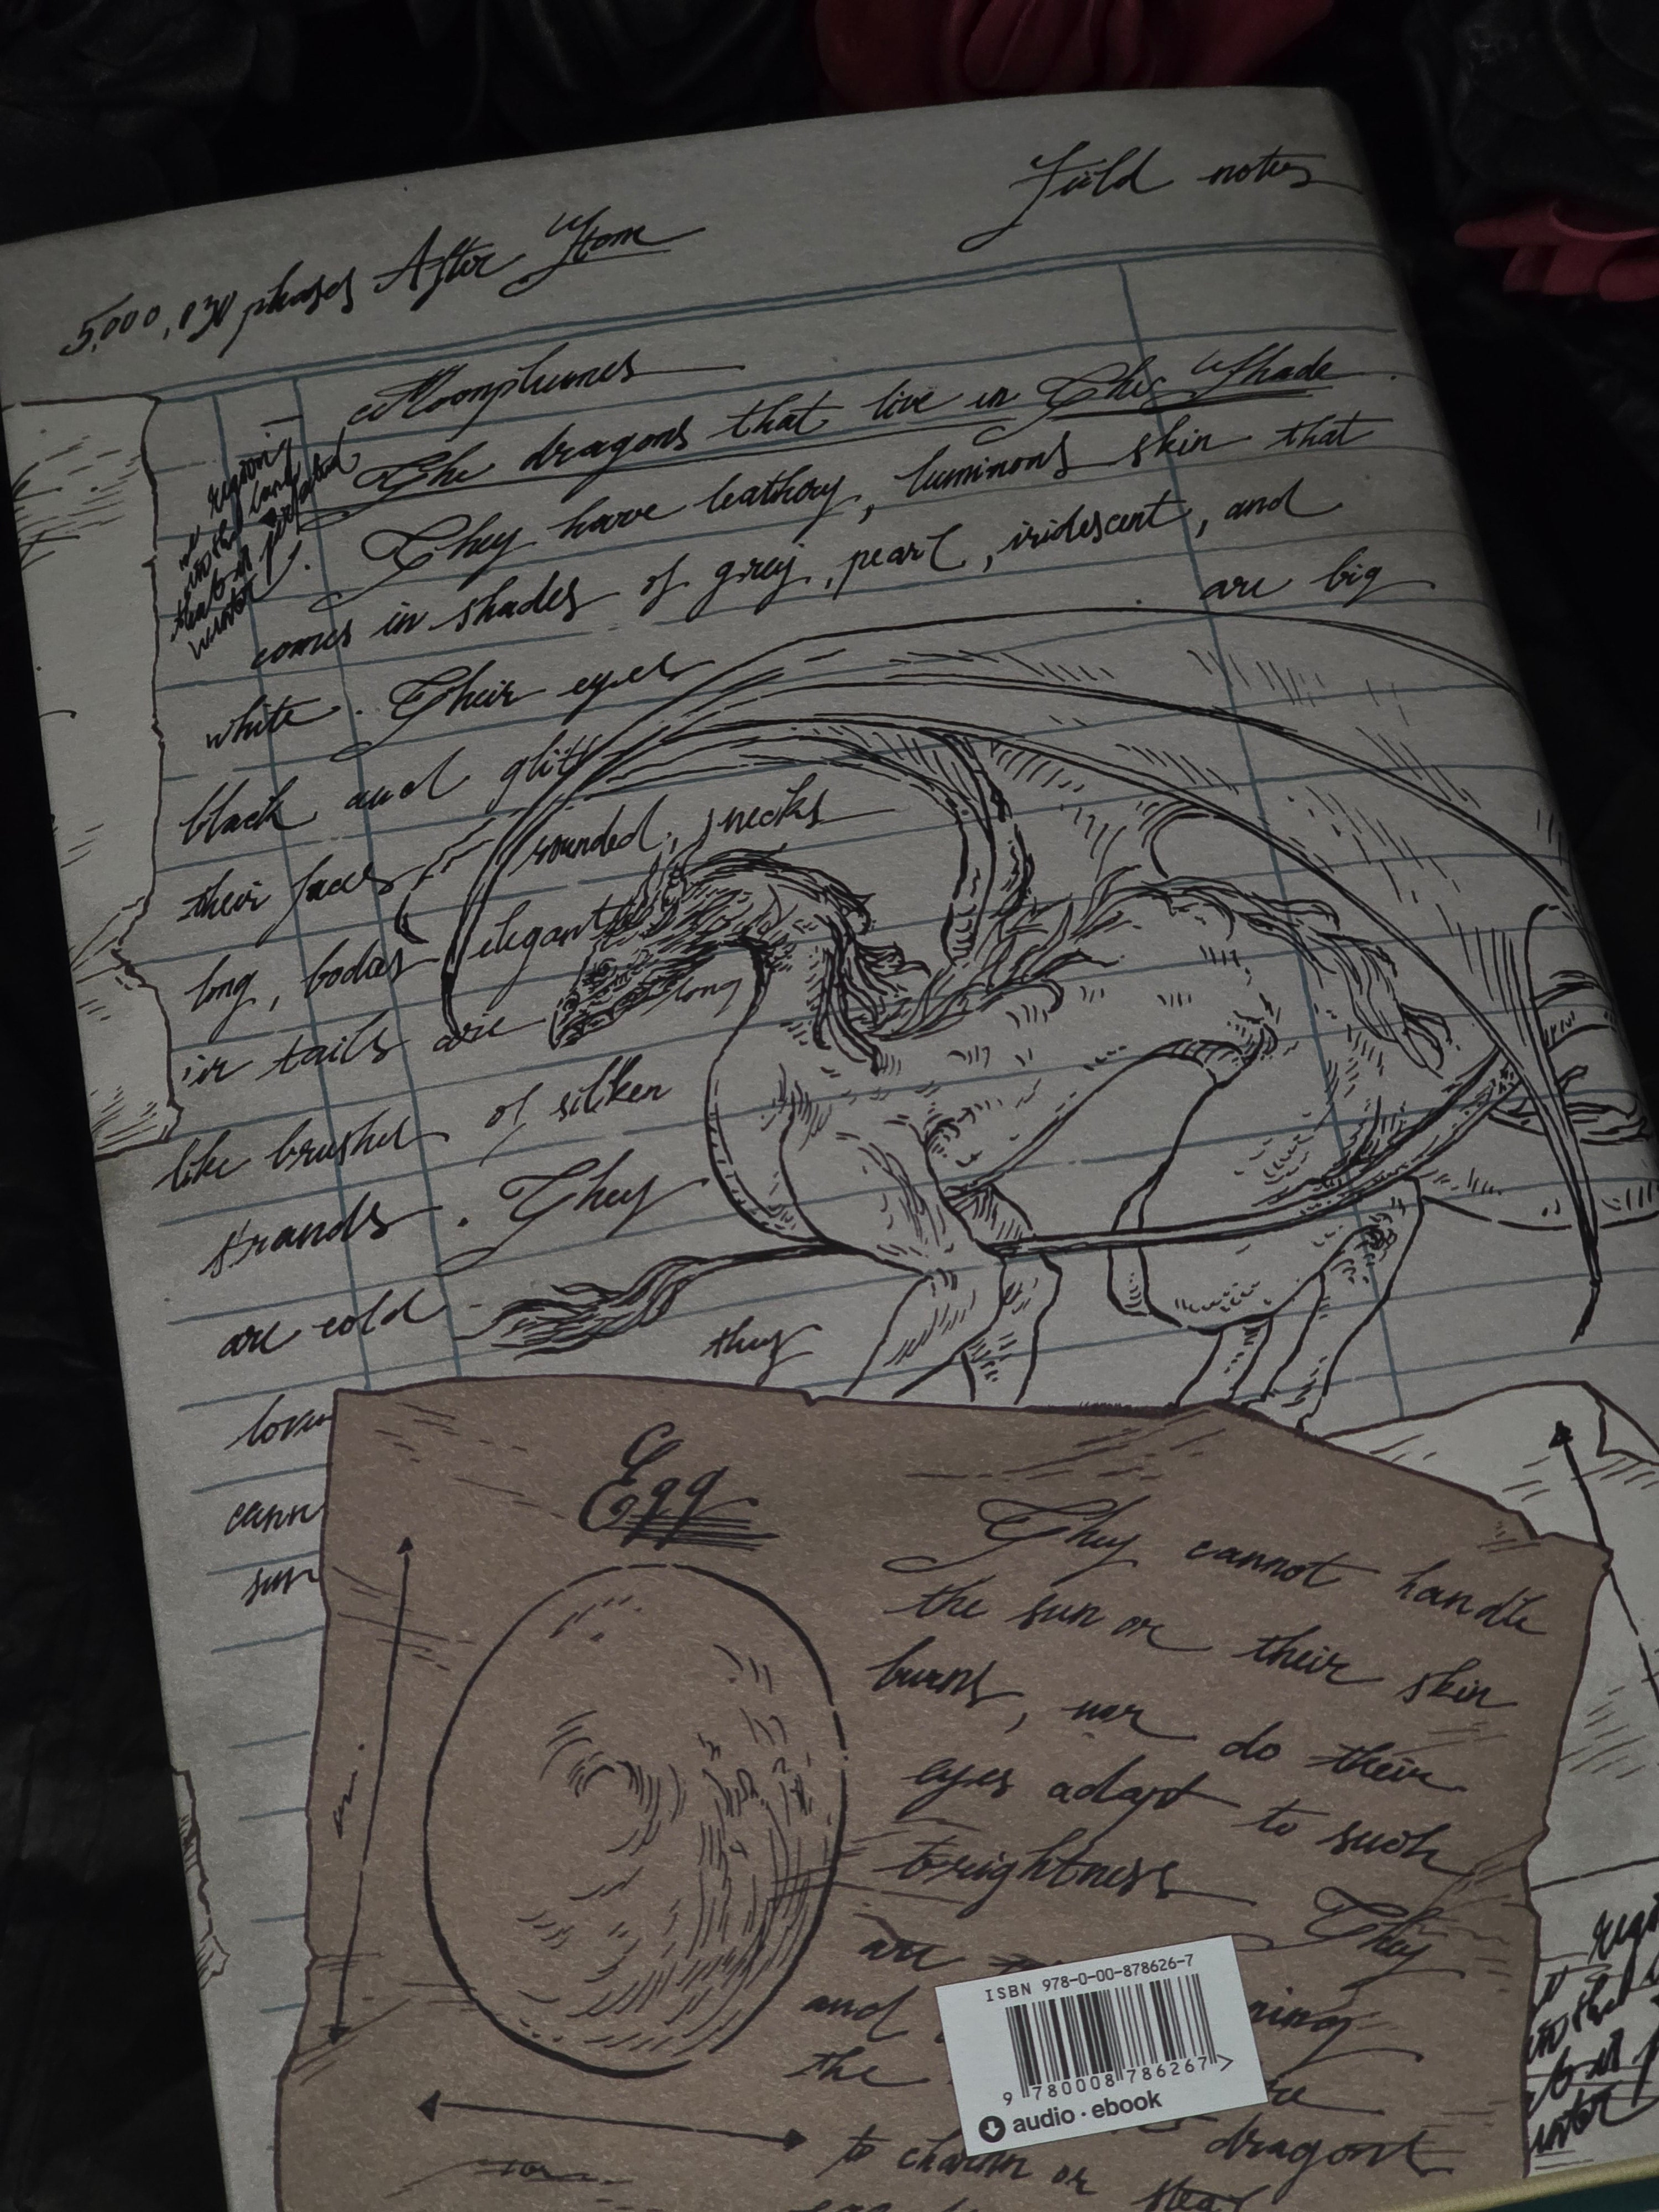 Field notes
5,000,030 phases After Stone
Moonplumes
The dragons that live in The Shade.
They have leathery, luminous skin that
comes in shades of grey, pearl, iridescent, and
white. Their eyes are big
black and glitt
their faces rounded, necks
long, bodies elegant
ir tails are long
like brushes of silken
strands. They
are cold
they
cann
sun
region
winter
Egg
They cannot handle
the sun or their skin
burns, nor do their
eyes adapt to such
brightness
They
are
and
the
to charm or
dragons
steal
ISBN 978-0-00-878626-7
9 780008 786267 >
audio · ebook